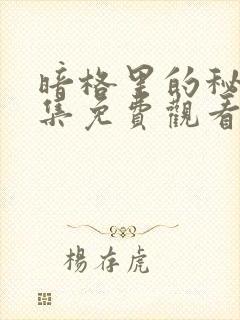 暗格里的秘
集免費觀看
楊存虎